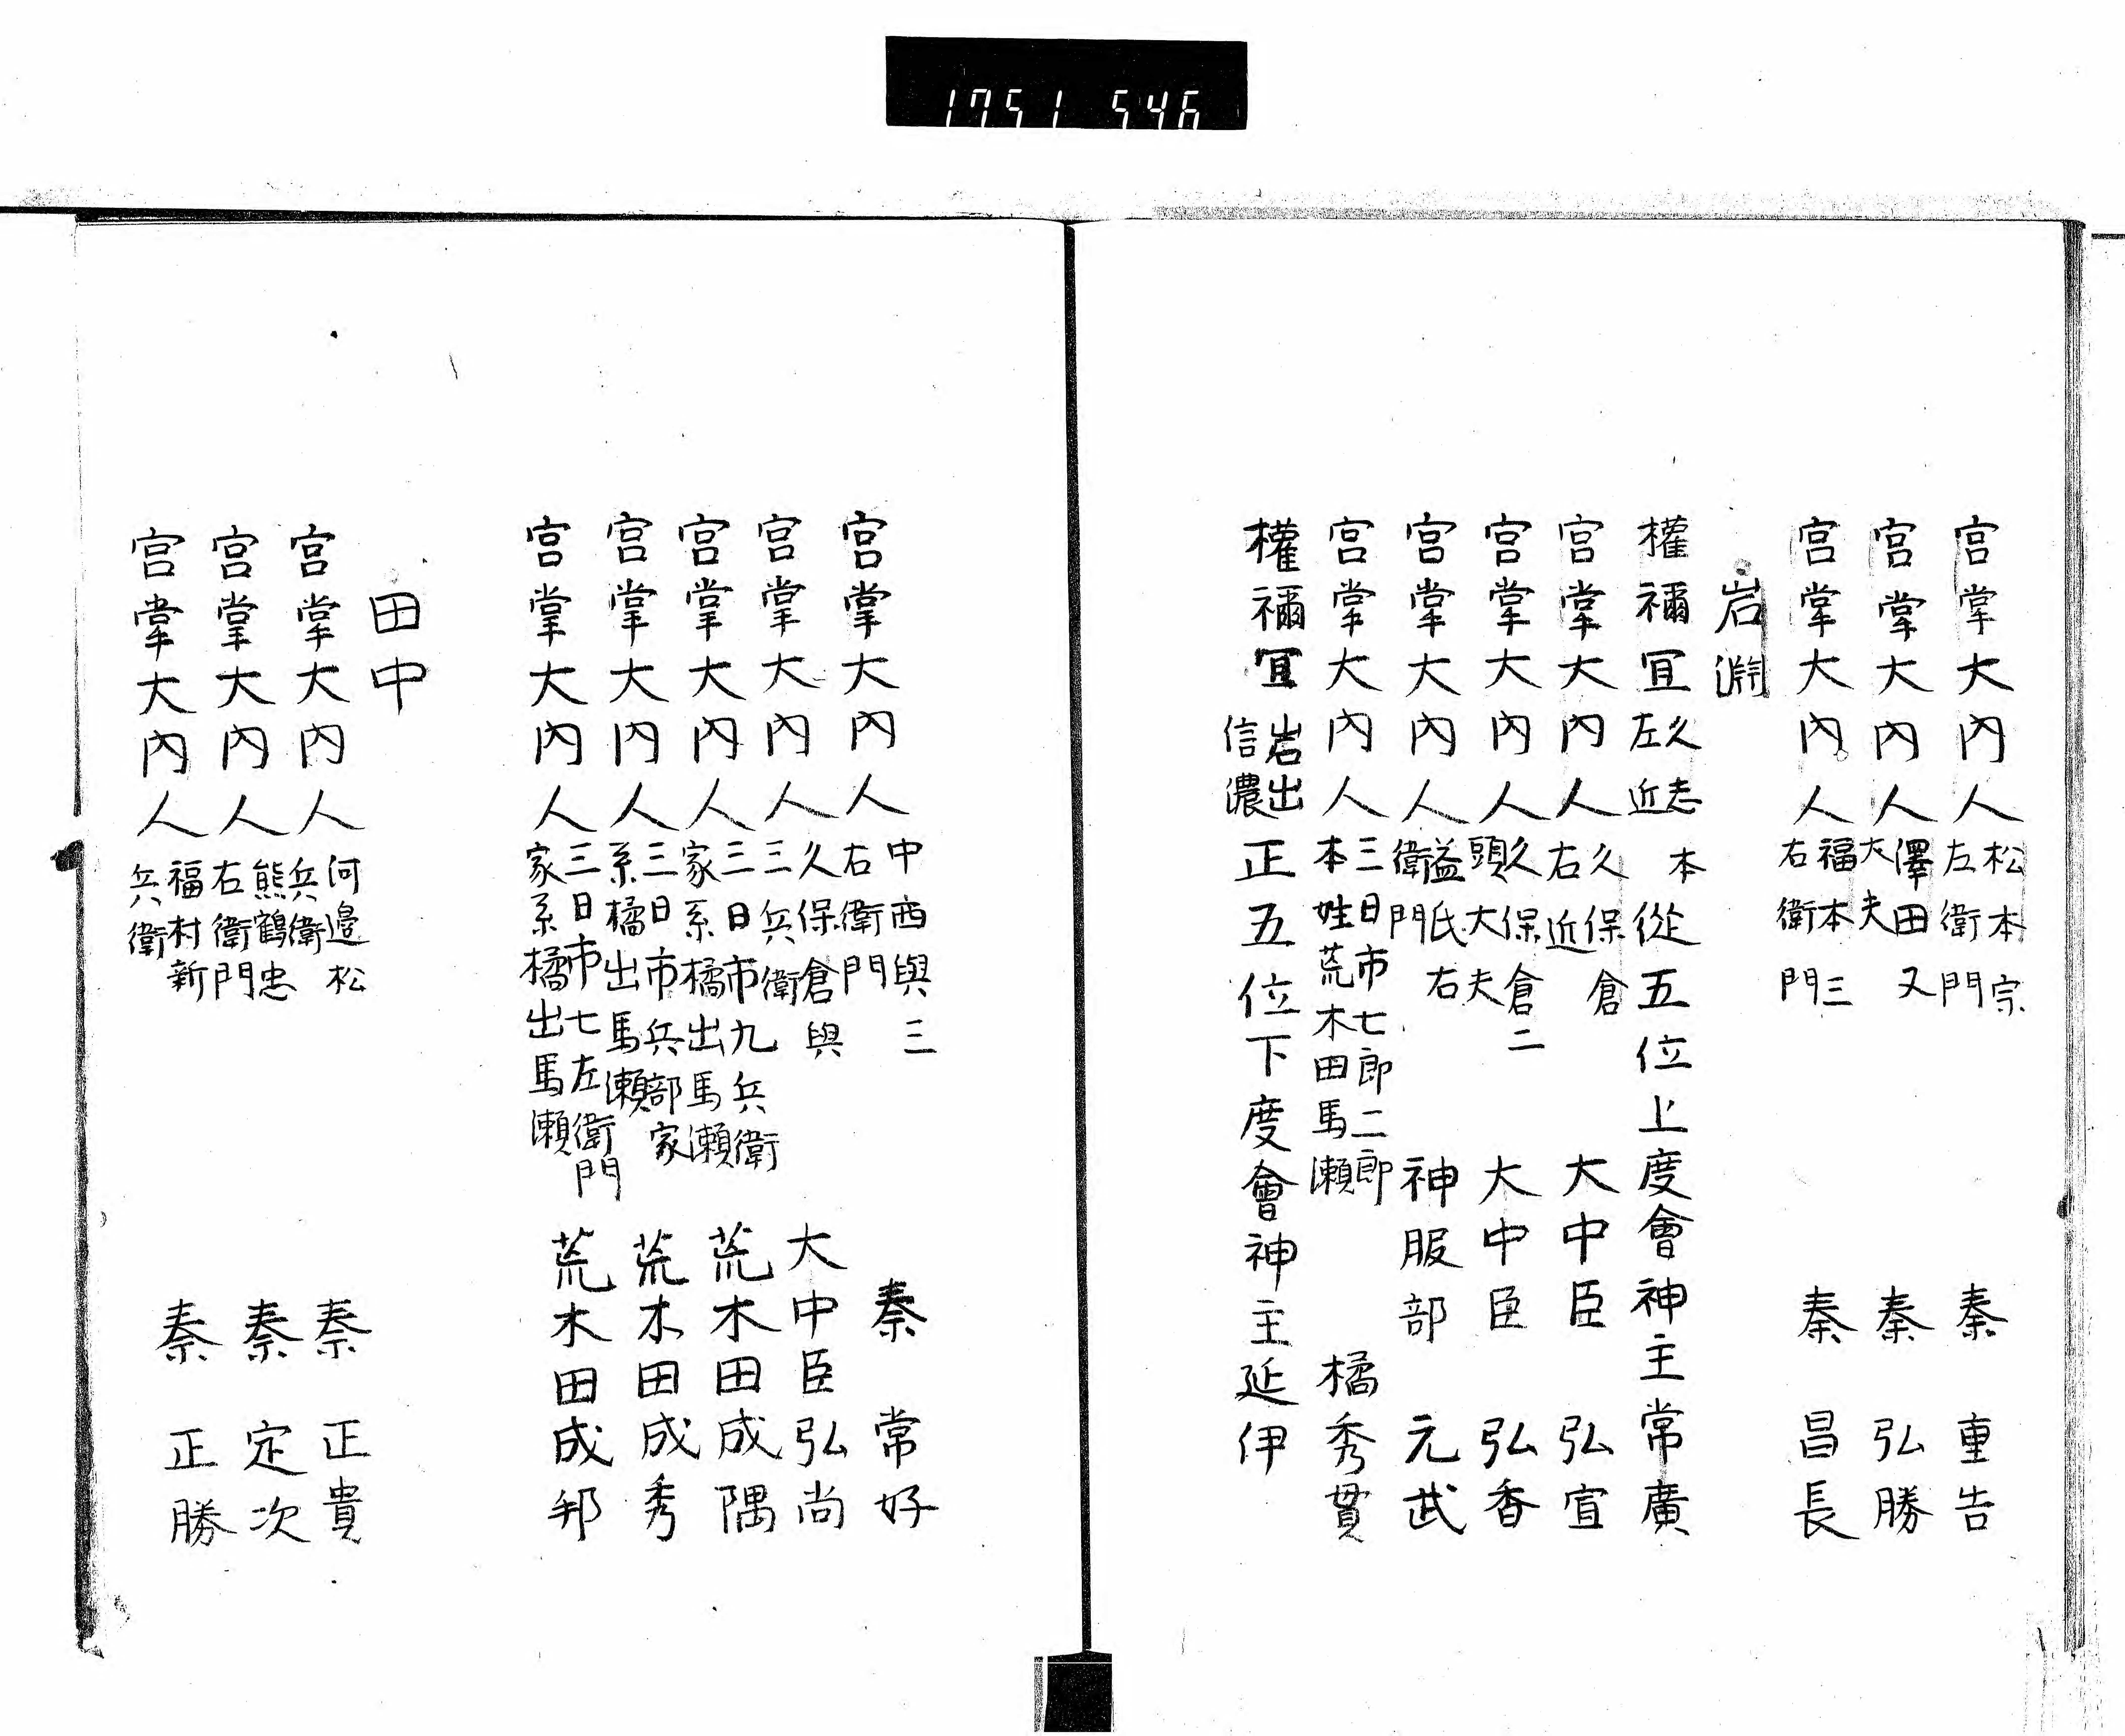 1751 546
宮掌大内人 松本宗左衛門 秦 重告
宮掌大内人 澤田又大夫 秦 弘勝
宮掌大内人 福本三右衛門 秦 昌長
岩淵
權禰宜 久志本左近 從五位上度會神主常廣
宮掌大内人 久保倉右近 大中臣 弘宣
宮掌大内人 久保倉二頭大夫 大中臣 弘香
宮掌大内人 益氏右衛門 神服部 元武
宮掌大内人 三日市七郎二郎本姓荒木田馬瀬 橘秀貫
權禰宜 岩出信濃 正五位下度會神主延伊
宮掌大内人 中西與三右衛門 秦 常好
宮掌大内人 久保倉與三兵衛 大中臣弘尚
宮掌大内人 三日市九兵衛家系橘出馬瀬 荒木田成隅
宮掌大内人 三日市兵部家系橘出馬瀬 荒木田成秀
宮掌大内人 三日市七左衛門家系橘出馬瀬 荒木田成邦
田中
宮掌大内人 河邉松兵衛 秦 正貴
宮掌大内人 熊鶴忠右衛門 秦 定次
宮掌大内人 福村新兵衛 秦 正勝